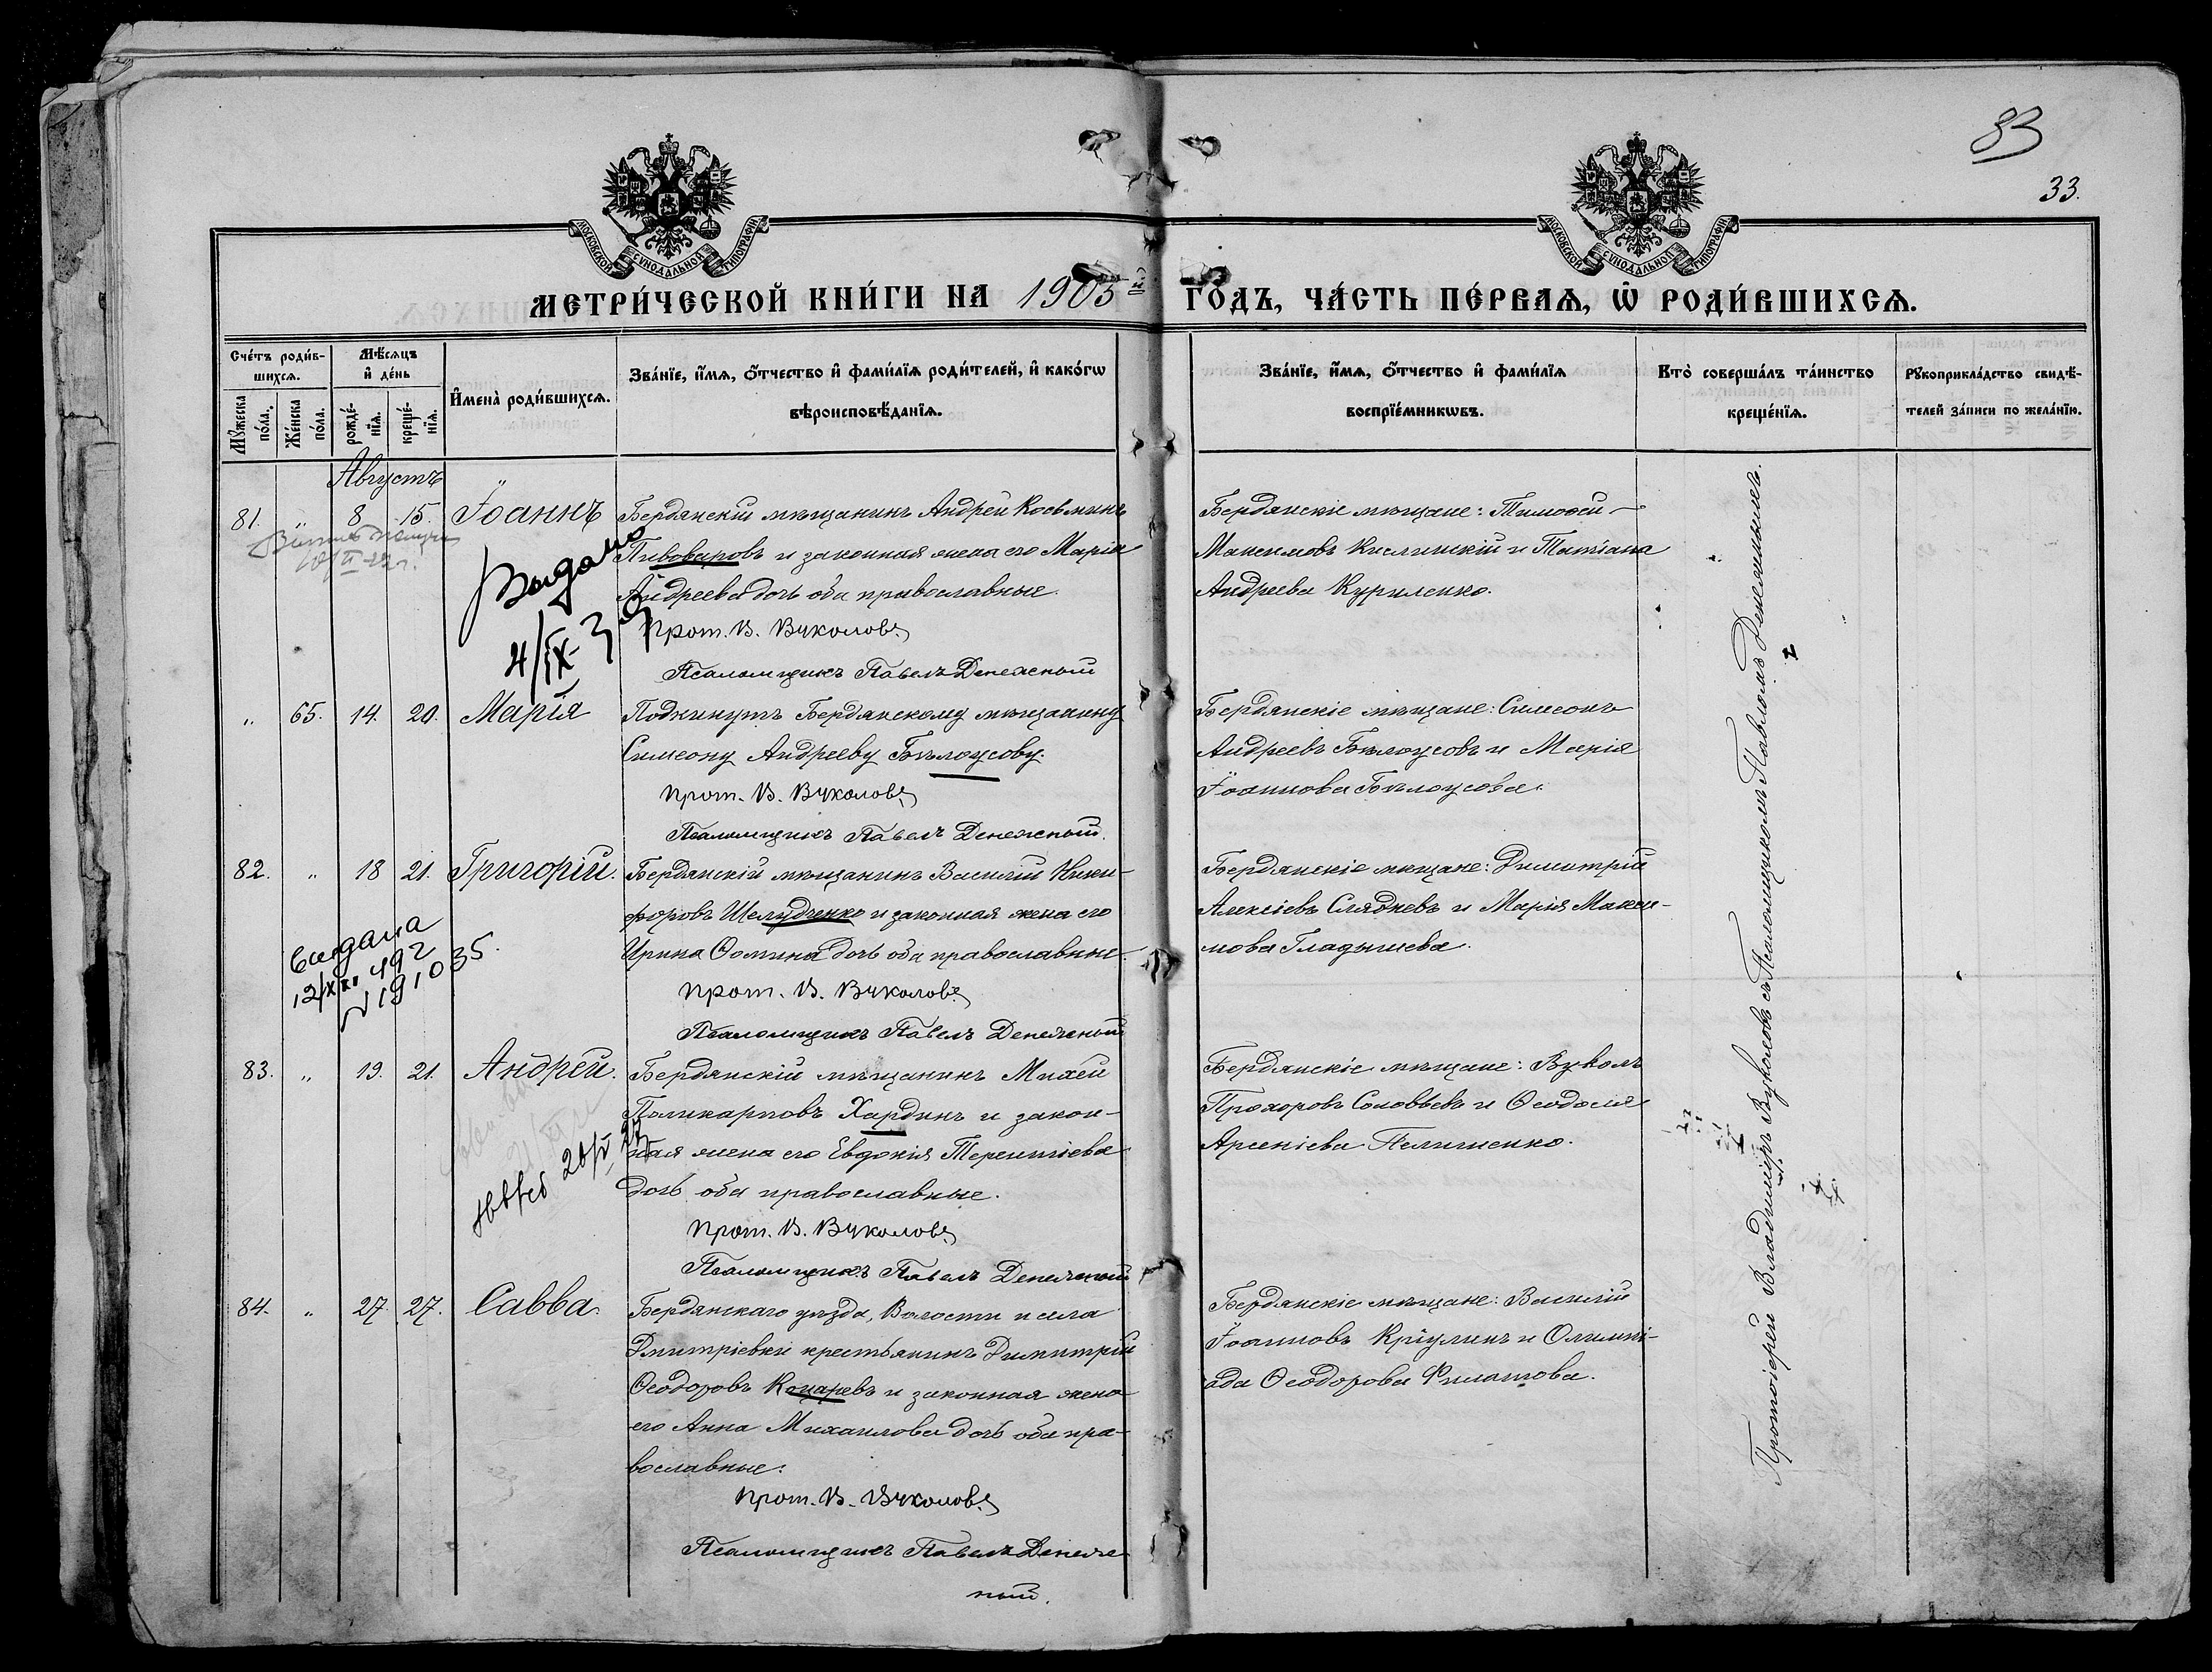 83
33.
МОСКОВСКОЙ СУНОДАЛЬНОЙ ТИПОГРАФІИ
МОСКОВСКОЙ СУНОДАЛЬНОЙ ТИПОГРАФІИ
МЕТРИ́ЧЕСКОЙ КНИ́ГИ НА 1905й ГО́ДЪ, ЧА́СТЬ ПЕ́РВАѦ, Ѡ РОДИ́ВШИХСѦ.
Сче́тъ роди́в-
шихсѧ.
Мꙋ́жеска по́ла.
Же́нска по́ла.
Мѣ́сѧцъ
и де́нь
рожде́-
нїѧ.
креще́-
нїѧ.
И҆мена̀ роди́вшихсѧ.
Зва́нїе, и҆́мѧ, ѻ҆́тчество и҆ фами́лїѧ роди́телей, и҆ како́гѡ
вѣроисповѣ́данїѧ.
Зва́нїе, и҆́мѧ, ѻ҆́тчество и҆ фами́лїѧ
воспрїе́мникѡвъ.
Кто̀ соверша́лъ та́инство
креще́нїѧ.
Рꙋкоприкла́дство свидѣ́-
телей за́писи по жела́нїю.
Августъ
81. " 8 15. Іоаннъ
Бердянскій мѣщанинъ Андрей Косьминъ
Пивоваровъ и законная жена его Марія
Андреева дочь оба православные.
Прот. В. Вуколовъ
Псаломщикъ Павелъ Денежный
Бердянскіе мѣщане: Тимоѳей
Максимовъ Кислинскій и Татіана
Андреева Куриленко.
Выдано
4/IX-39
" 65. 14. 20. Марія
Подкинутъ Бердянскому мѣщанину
Симеону Андрееву Бѣлоусову.
Прот. В. Вуколовъ
Псаломщикъ Павелъ Денежный.
Бердянскіе мѣщане: Симеонъ
Андреевъ Бѣлоусовъ и Марія
Іоаннова Бѣлоусова.
82. " 18 21. Григорій.
Бердянскій мѣщанинъ Василій Ники-
форовъ Шелудченко и законная жена его
Ирина Ѳомина дочь оба православные.
Прот. В. Вуколовъ
Псаломщикъ Павелъ Денежный
Бердянскіе мѣщане: Димитрій
Алексіевъ Слядневъ и Марія Макси-
мова Гладышева.
выдана
83. " 19. 21. Андрей.
Бердянскій мѣщанинъ Михей
Поликарповъ Хардинъ и закон-
ная жена его Евдокія Терентіева
дочь оба православные.
Прот. В. Вуколовъ
Псаломщикъ Павелъ Денежный
Бердянскіе мѣщане: Вуколъ
Прохоровъ Соловьевъ и Ѳеодосія
Арсеніева Пелишенко.
84. " 27. 27. Савва.
Бердянскаго уѣзда, Волости и села
Дмитріевки крестьянинъ Димитрій
Ѳеодоровъ Коцаревъ и законная жена
его Анна Михаилова дочь оба пра-
вославные.
Прот. В. Вуколовъ
Псаломщикъ Павелъ Денеж
ный.
Бердянскіе мѣщане: Василій
Іоанновъ Кріулинъ и Олимпі-
ада Ѳеодорова Филатова.
Протоіерей Владиміръ Вуколовъ съ Псаломщикомъ Павломъ Денежнымъ.